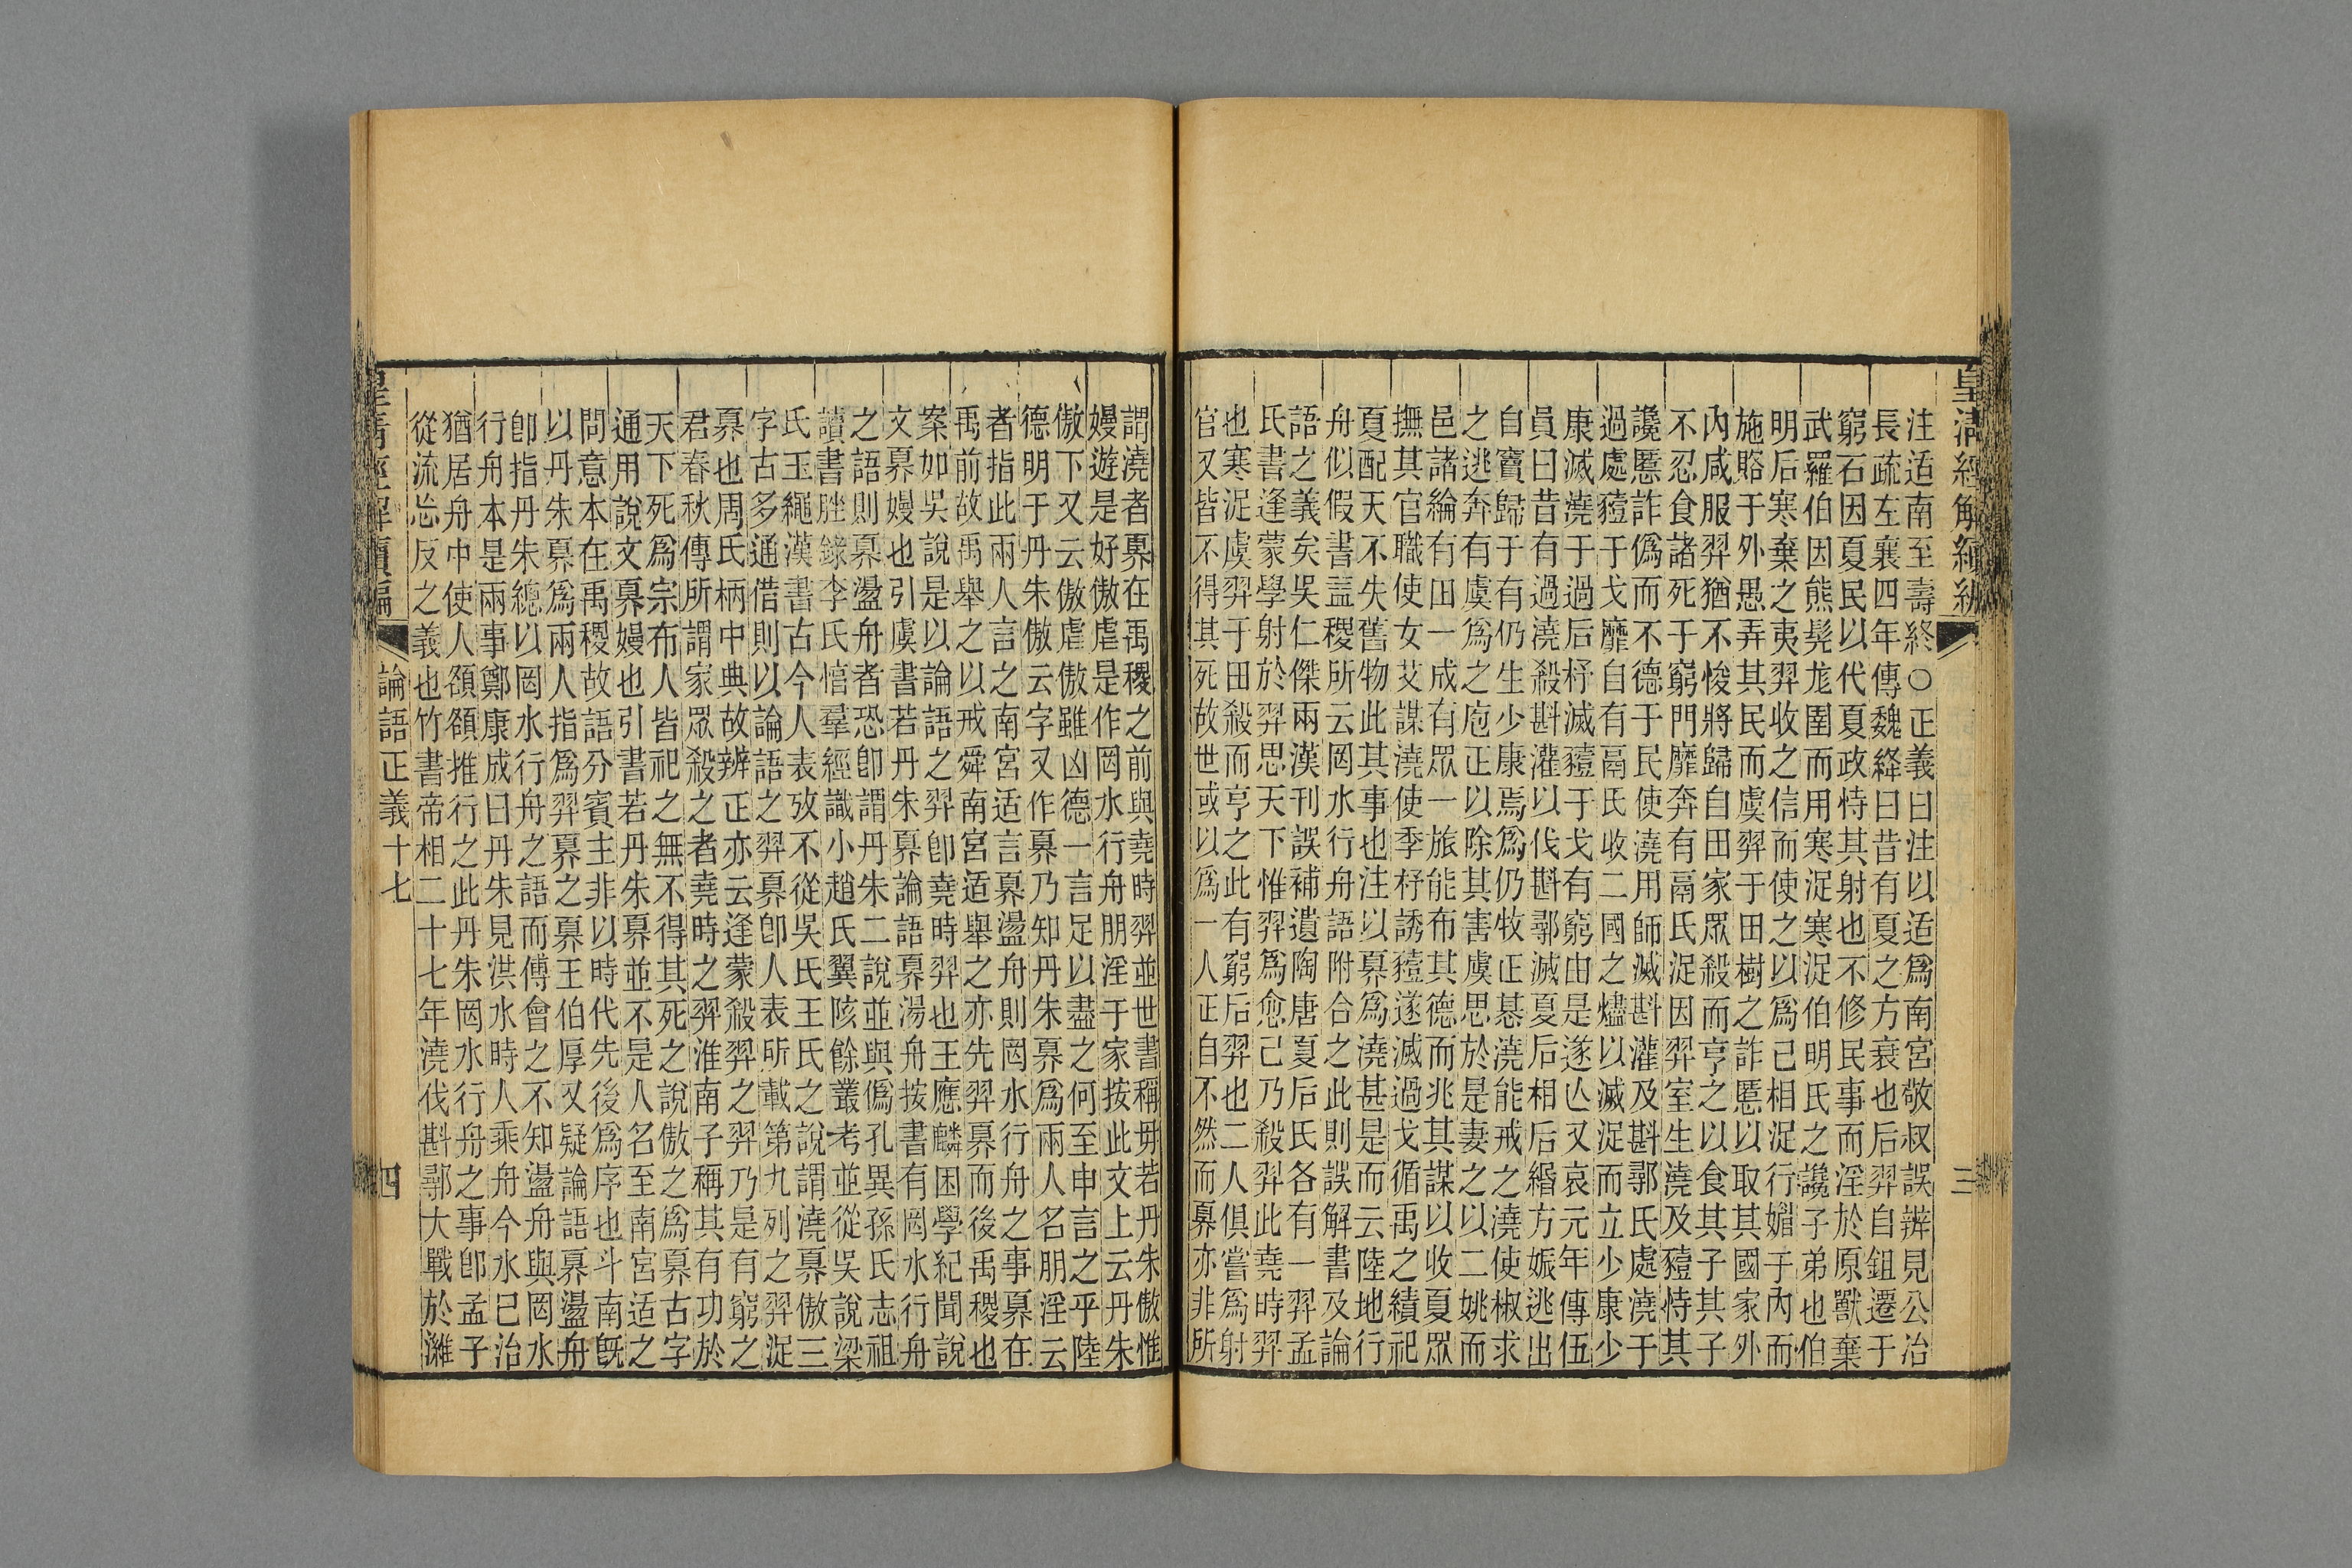 皇清經解續編
三
注适南至壽終○正義曰注以适爲南宮敬叔誤辨見公冶
長疏左襄四年傳魏絳曰昔有夏之方衰也后羿自鉏遷于
窮石因夏民以代夏政恃其射也不修民事而淫於原獸棄
武羅伯因熊髡尨圉而用寒浞寒浞伯明氏之讒子弟也伯
明后寒棄之夷羿收之信而使之以爲己相浞行媚于內而
施賂于外愚弄其民而虞羿于田樹之詐慝以取其國家外
內咸服羿猶不悛將歸自田家眾殺而亨之以食其子其子
不忍食諸死于窮門靡奔有鬲氏浞因羿室生澆及豷恃其
讒慝詐僞而不德于民使澆用師滅斟灌及斟鄩氏處澆于
過處豷于戈靡自有鬲氏收二國之燼以滅浞而立少康少
康滅澆于過后杼滅豷于戈有窮由是遂亾又哀元年傳伍
員曰昔有過澆殺斟灌以伐斟鄩滅夏后相后緡方娠逃出
自竇歸于有仍生少康焉爲仍牧正惎澆能戒之澆使椒求
之逃奔有虞爲之庖正以除其害虞思於是妻之以二姚而
邑諸綸有田一成有眾一旅能布其德而兆其謀以收夏眾
撫其官職使女艾諜澆使季杼誘豷遂滅過戈循禹之績祀
夏配天不失舊物此其事也注以奡爲澆甚是而云陸地行
舟似假書蓋稷所云罔水行舟語附合之此則誤解書及論
語之義矣吳仁傑兩漢刊誤補遺陶唐夏后氏各有一羿孟
氏書逢蒙學射於羿思天下惟羿爲愈己乃殺羿此堯時羿
也寒浞虞羿于田殺而亨之此有窮后羿也二人俱嘗爲射
官又皆不得其死故世或以爲一人正自不然而奡亦非所
謂澆者奡在禹稷之前與堯時羿並世書稱毋若丹朱傲惟
嫚遊是好傲虐是作罔水行舟朋淫于家按此文上云丹朱
傲下又云傲虐傲雖凶德一言足以盡之何至申言之乎陸
德明于丹朱傲云字又作奡乃知丹朱奡爲兩人名朋淫云
者指此兩人言之南宮适言奡盪舟則罔水行舟之事奡在
禹前故禹舉之以戒舜南宮适舉之亦先羿奡而後禹稷也
案如吳說是以論語之羿卽堯時羿也王應麟困學紀聞說
文奡嫚也引虞書若丹朱奡論語奡湯舟按書有罔水行舟
之語則奡盪舟者恐卽謂丹朱二說並與僞孔異孫氏志祖
讀書脞錄李氏惇羣經識小趙氏翼陔餘叢考並從吳說梁
氏玉繩漢書古今人表攷不從吳氏王氏之說謂澆奡傲三
字古多通借則以論語之羿奡卽人表所載第九列之羿浞
奡也周氏柄中典故辨正亦云逢蒙殺羿之羿乃是有窮之
君春秋傳所謂家眾殺之者堯時之羿淮南子稱其有功於
天下死爲宗布人皆祀之無不得其死之說傲之爲奡古字
通用說文奡嫚也引書若丹朱奡並不是人名至南宮适之
問意本在禹稷故語分賓主非以時代先後爲序也斗南旣
以丹朱奡爲兩人指爲羿奡之奡王伯厚又疑論語奡盪舟
卽指丹朱總以罔水行舟之語而傅會之不知盪舟與罔水
行舟本是兩事鄭康成曰丹朱見洪水時人乘舟今水已治
猶居舟中使人頟頟推行之此丹朱罔水行舟之事卽孟子
從流忘反之義也竹書帝相二十七年澆伐斟鄩大戰於濰
皇清經解續編
論語正義十七
四